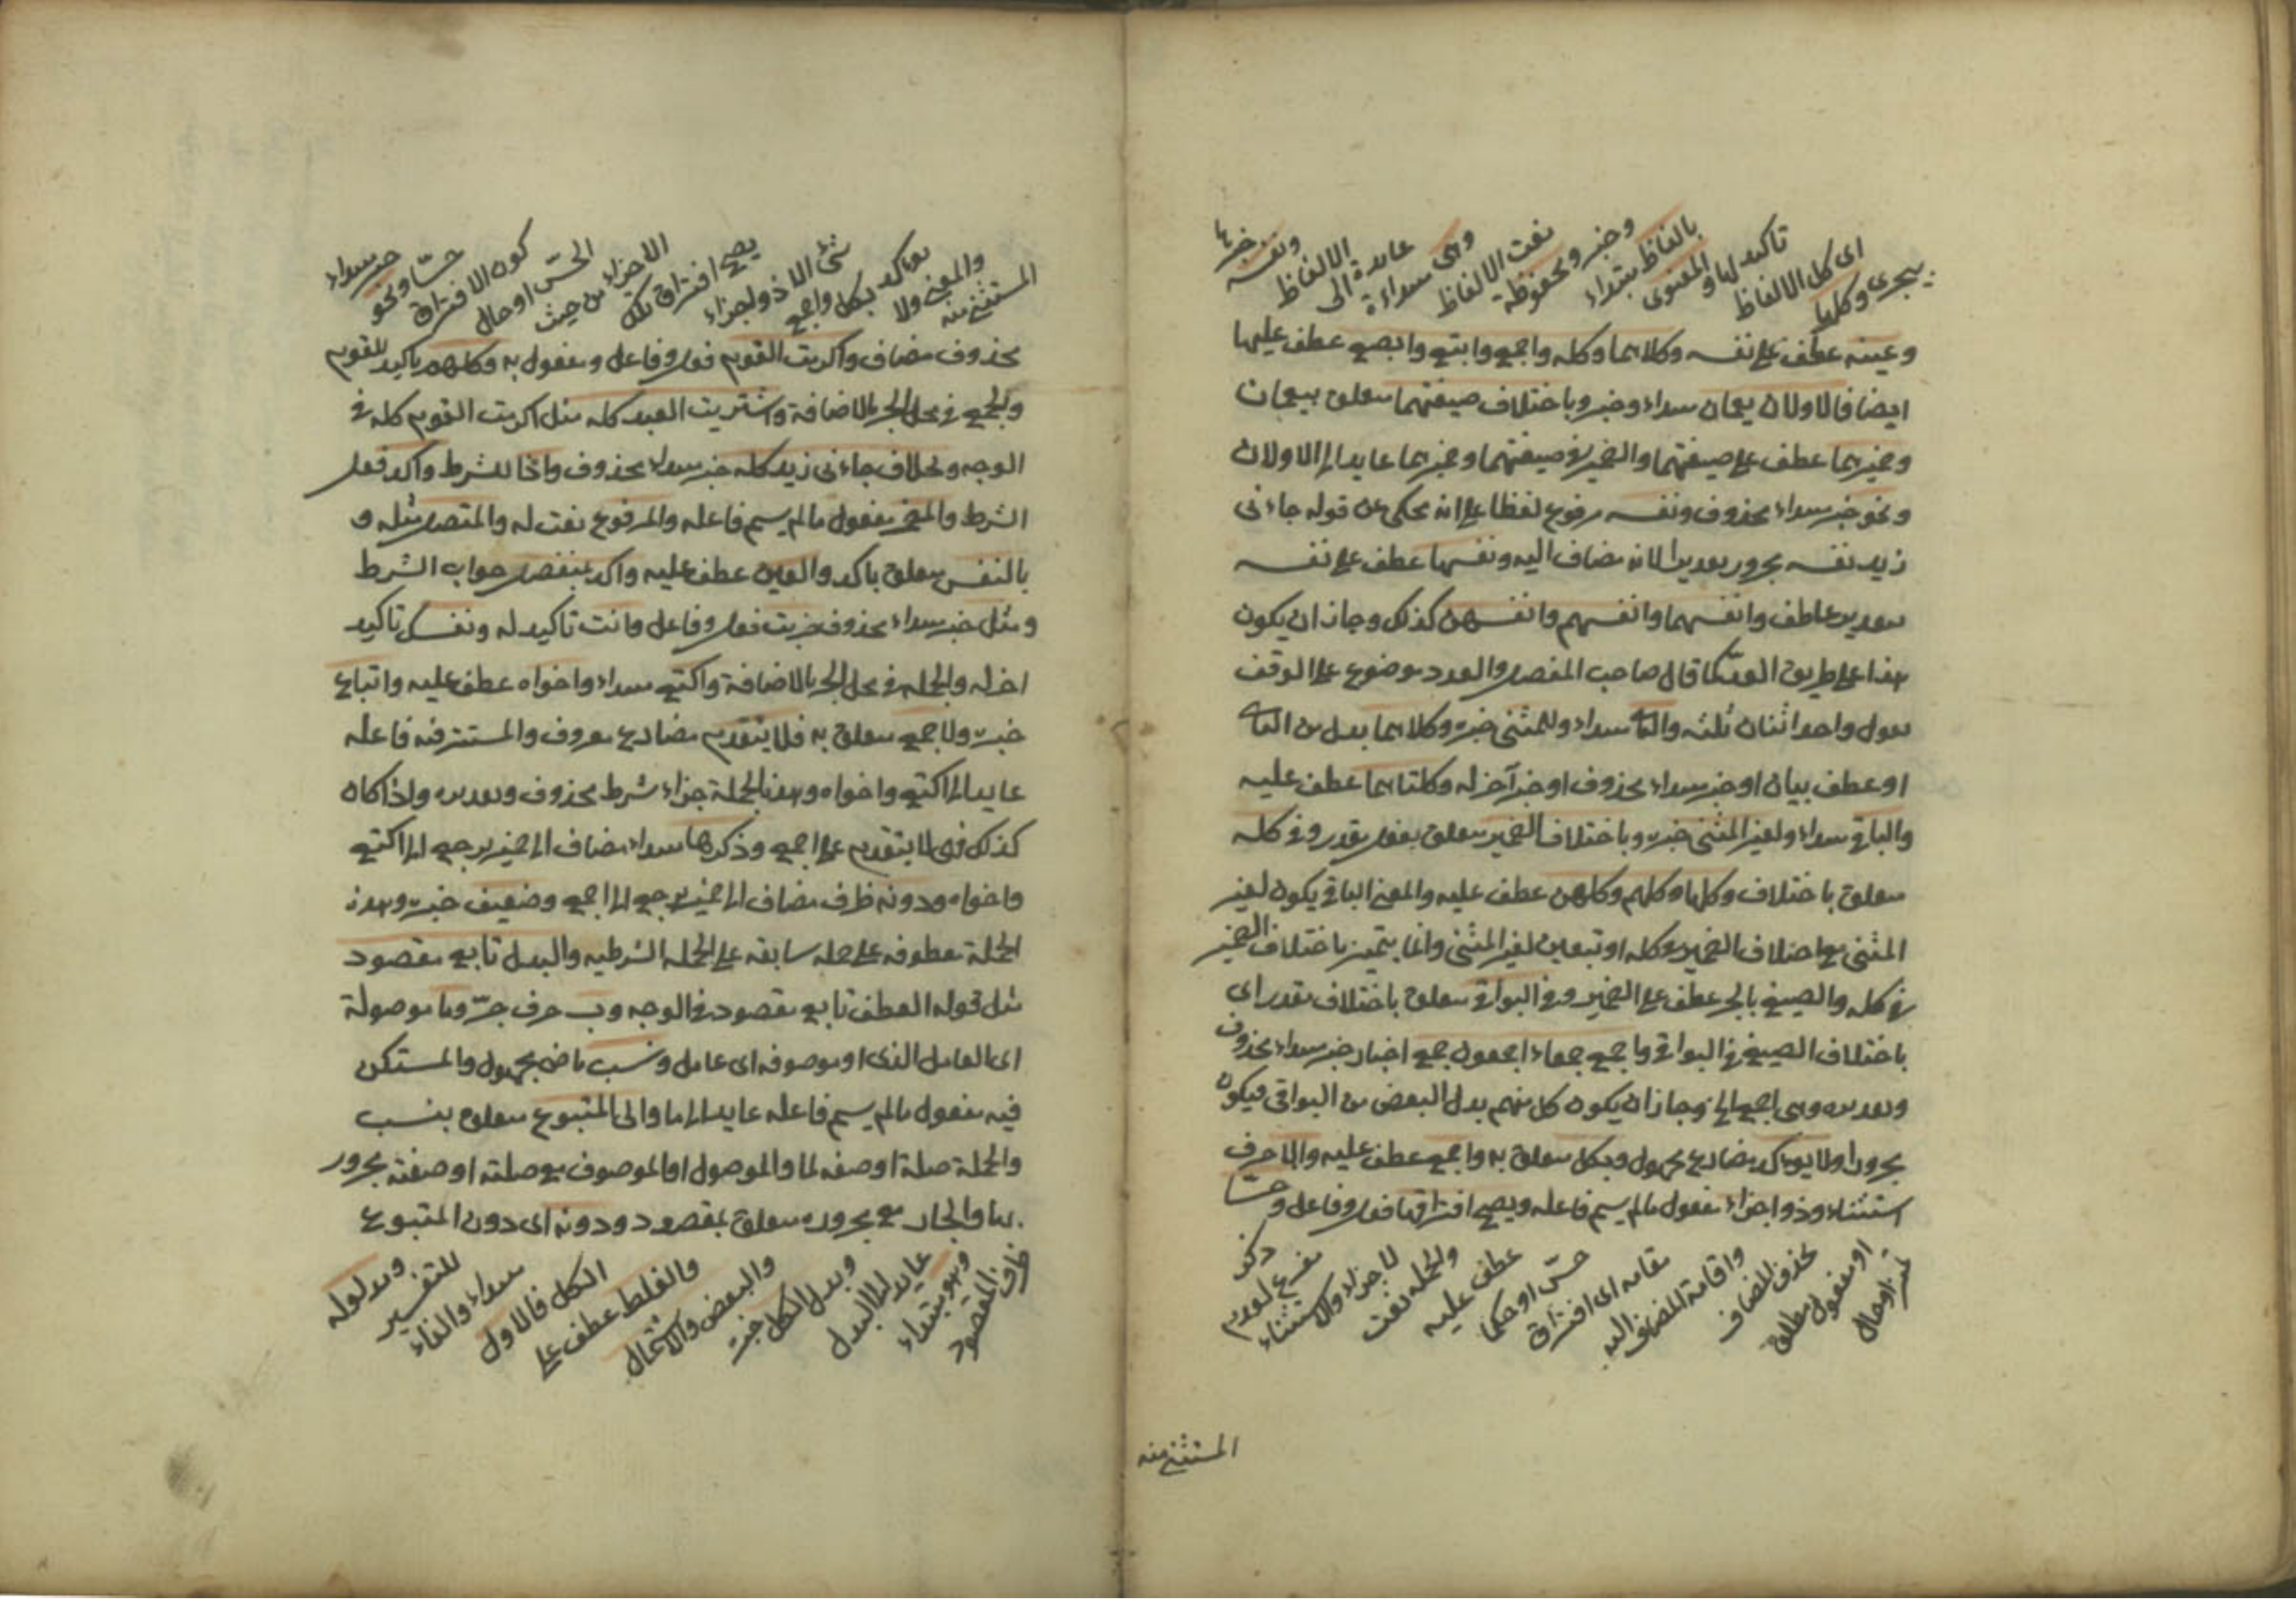 يجرى وكلها
اى كل الالفاظ
تاكيد لها و
المعنوى
بالفاظ مبتداء
وخبر ومحفوظة
نعت الالفاظ
وهى مبتداءة
عايدة الى
الالفاظ
ونفسه خبرها
وعينه عطف على نفسه وكلاهما وكله واجمع واكتع وابتع وابصع عطف عليها
ايضا فالاولان يعمان مبتداء وخبر وباختلاف صيغتهما متعلق بيعمان
وضميرهما عطف على صيغتهما والضمير فى صيغتهما وضميرهما عايد الى الاولان
ونحو خبر مبتداء محذوف ونفسه مرفوع لفظا على انه محكى عن قوله جاءنى
زيد نفسه مجرور تقديرا لانه مضاف اليه ونفسها عطف على نفسه
بتقدير عاطف وانفسهما وانفسهم وانفسهن كذلك وجاز ان يكون
هذا على طريق العدد كما قال صاحب المفصل والعدد موضوع على الوقف
تقول واحد اثنان ثلثه والثانى مبتداء وللمثنى خبره وكلاهما بدل من الثانى
او عطف بيان او خبر مبتداء محذوف او خبر آخر له وكلتاهما عطف عليه
والباقى مبتداء ولغير المثنى خبره وباختلاف الضمير متعلق بفعل مقدر وفى كله
متعلق باختلاف وكلها وكلهم وكلهن عطف عليه والمعنى الباقى يكون لغير
المثنى مع اختلاف الضمير وكله او تبعين لغير المثنى وانما يتميز باختلاف الضمير
فى كله والصيغ بالجر عطف على الضمير وفى البواقى متعلق باختلاف مقدر اى
باختلاف الصيغ فى البواقى واجمع جمعاء اجمعون جمع اخبار خبر مبتداء محذوف
وتقديره وهى اجمع الخ وجاز ان يكون كل منهم بدل البعض من البواقى فيكون
مجرورا ولا يؤكد مضارع مجهول وبكل متعلق به واجمع عطف عليه والا حرف
استثناء وذو اجزاء مفعول ما لم يسم فاعله ويصح افتراقها فعل وفاعل وحسّا
تميز او حال
او مفعول مطلق
بحذف المضاف
واقامة المضاف اليه
مقامه اى افتراق
حسّى او حكما
عطف عليه
والجمله نعت
لاجزاء والاستثناء
مفرغ لعدم
ذكر
المستثنى منه
المستثنى منه
والمعنى ولا
يؤاكد بكل واجمع
شئ الا ذو اجزاء
يصح افتراق تلك
الاجزاء من حيث
الحسّ او حال
كون الافتراق
حسّا ونحو
خبر مبتداء
محذوف مضاف واكرمت القوم فعل وفاعل ومفعول به وكلهم تاكيد للقوم
والجميع فى محل الجر بالاضافة واشتريت العبد كله مثل اكرمت القوم كله فى
الوجه وبخلاف جاءنى زيد كله خبر مبتداء محذوف واذا للشرط واكد فعل
الشرط والمضمر مفعول ما لم يسم فاعله والمرفوع نعت له والمتصل مثله و
بالنفس متعلق باكد والعين عطف عليه واكد بمنفصل جواب الشرط
ومثل خبر مبتداء محذوف ضربت فعل وفاعل وانت تاكيد له ونفسك تاكيد
اخر له والجمله فى محل الجر بالاضافة واكتع مبتداء واخواه عطف عليه واتباع
خبره ولاجمع متعلق به فلا يتقدم مضارع معروف والمستتر فيه فاعله
عايد الى اكتع واخواه وهذه الجملة جزاء شرط محذوف وتقديره واذا كان
كذلك فهى لا يتقدم على اجمع وذكرها مبتداء مضاف الى ضمير يرجع الى اكتع
واخواه ودونه ظرف مضاف الى ضمير يرجع الى اجمع وضعيف خبره وهذه
الجملة معطوفه على جمله سابقه على الجمله الشرطيه والبدل تابع مقصود
مثل قوله العطف تابع مقصود فى الوجه وب حرف جرّ وما موصولة
اى العامل الذى او موصوفه اى عامل ونسب ماضى مجهول والمستكن
فيه مفعول ما لم يسم فاعله عايد الى ما والى المتبوع متعلق بنسب
والجملة صلة او صفه لما والموصول او الموصوف مع صلته او صفته مجرور
بها والجار مع مجروره متعلق بمقصود ودونه اى دون المتبوع
ظرف المقصود
وهو مبتداء
عايد الى البدل
وبدل الكل خبره
والبعض والاشتمال
والغلط عطف على
الكل فالاول
مبتداء والفاء
للتفسير
ومدلوله